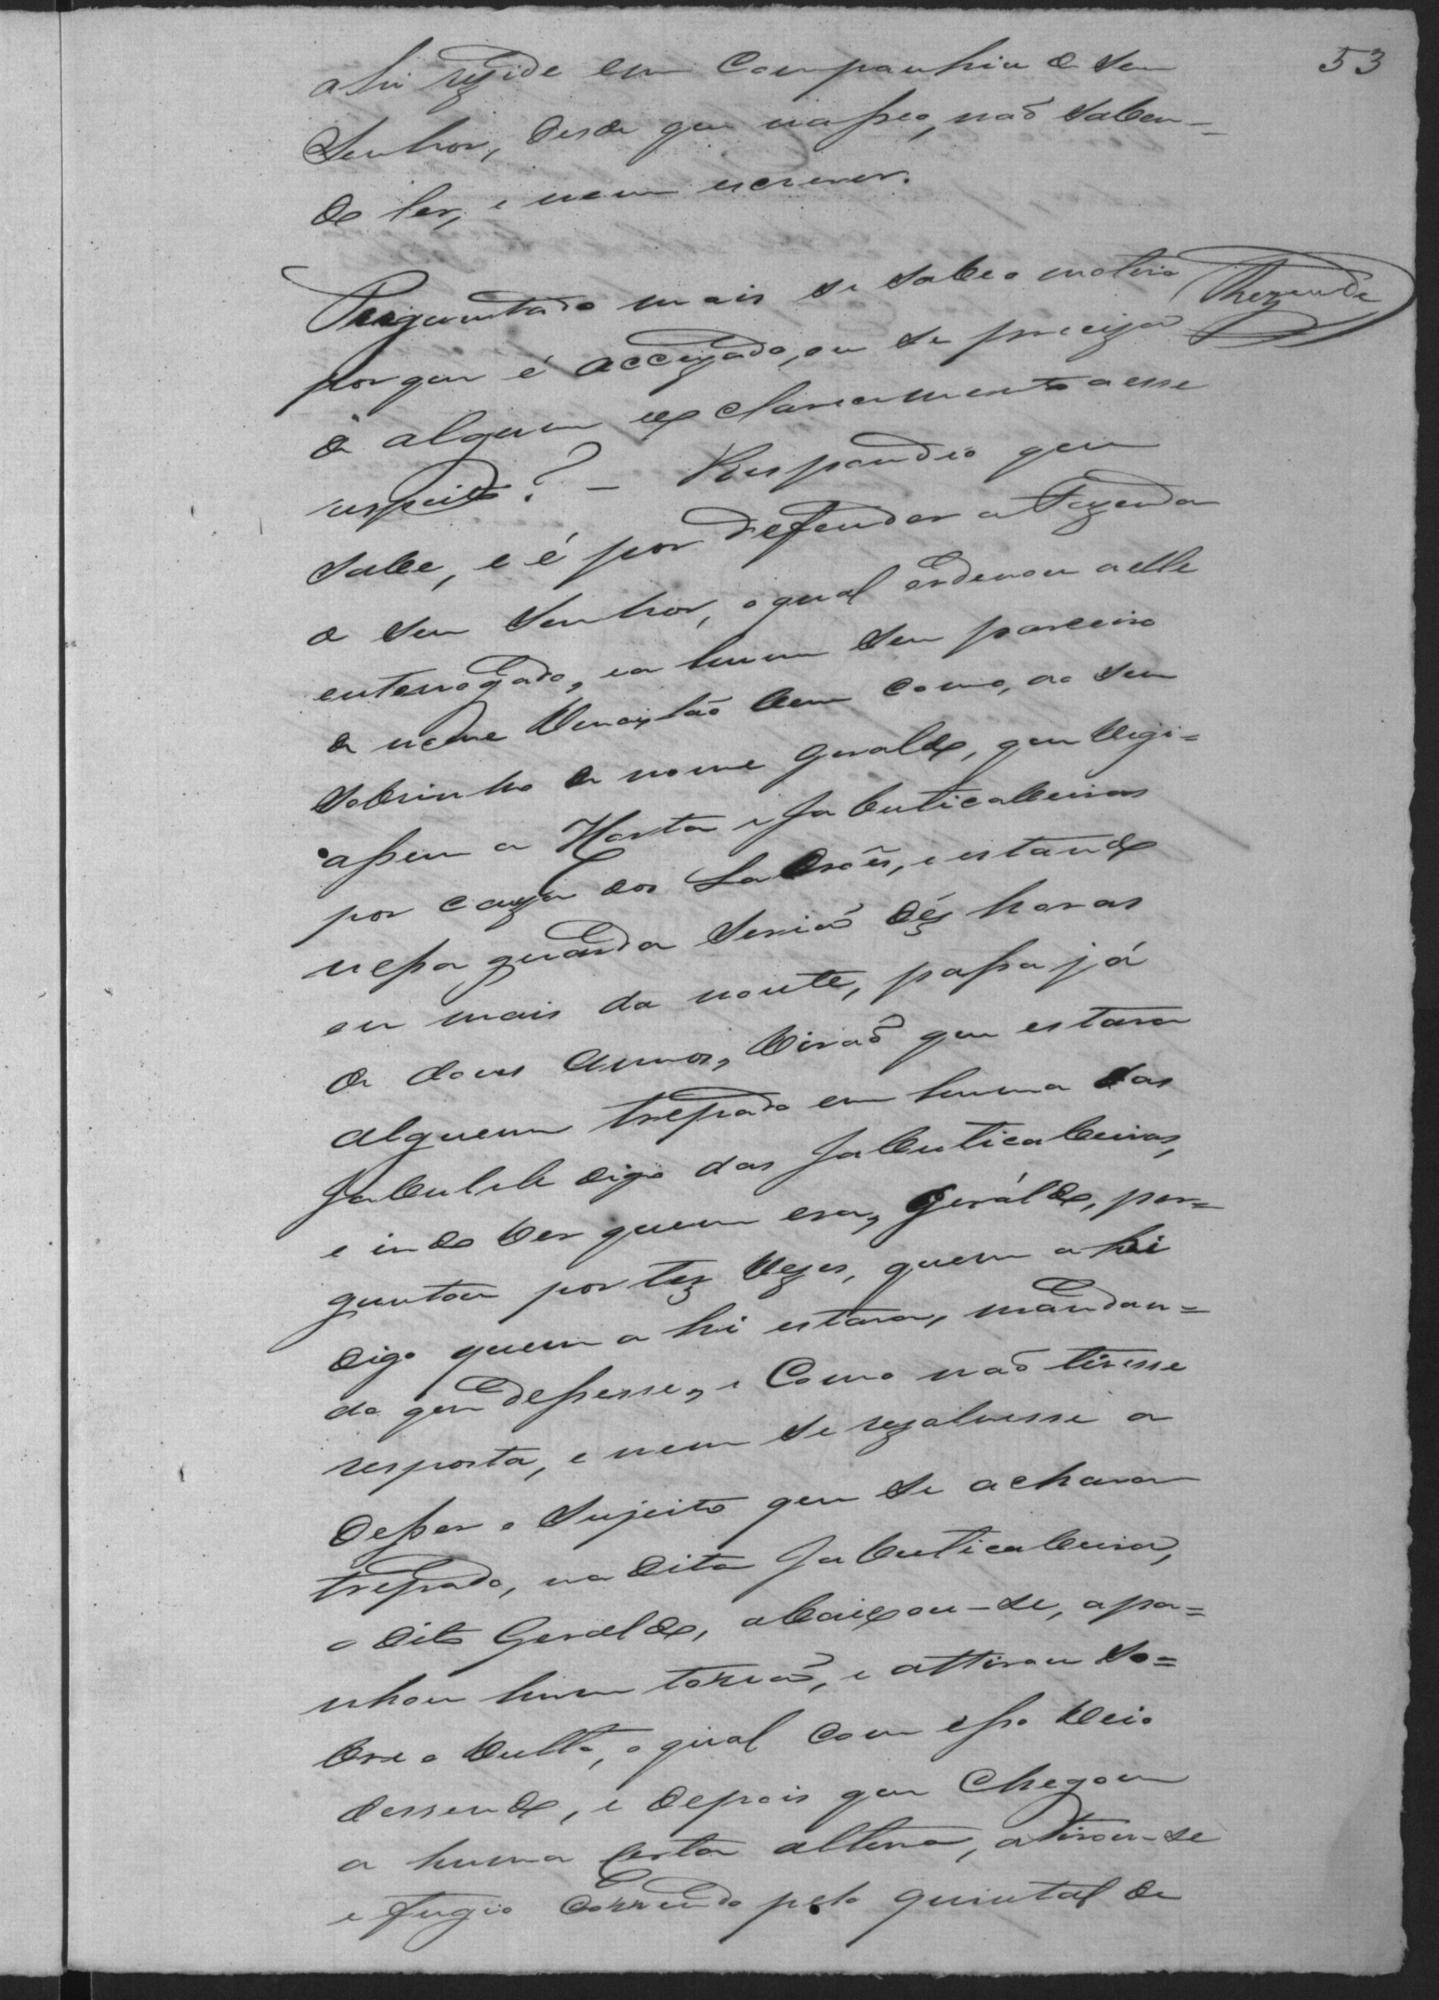 53
ahi rezide em companhia de seu
Senhor, desde que nasceo, não saben-
do ler, e nem escrever.
Rezende
Preguntado mais se sabe o motivo
por que é accuzado, ou se preciza
de algum esclarecimento a esse
respeito? – Respondeo que
sabe, e é por defender a Fazenda
de seu Senhor, o qual ordenou a elle
enterrogado, e a hum seu parceiro
de nome Vencislão bem como, ao seu
sobrinho de nome Geraldo, que vigi=
assem a Horta e Jabuticabeiras
por cauza dos Ladrões, e estando
nessa guarda serião déz horas
ou mais da noute, passa já
de dous annos, virão que estava
alguem trepado em huma das
Jabulib digo das Jabuticabeiras,
e indo ver quem era, Geráldo, per=
guntou por trez vezes, quem ahi
digo quem ahi estava, mandan=
do que descesse, e como não tivesse
resposta, e nem se rezolvesse a
descer o sujeito que se achava
trepado, na dita Jabuticabeira,
o dito Geraldo, abaixou-se, apa=
nhou hum torrão, e attirou so=
bre o vulto, o qual com esso veio
dessendo, e depois que chegou
a huma certa altura, atirou-se
e fugio correndo pelo quintal de